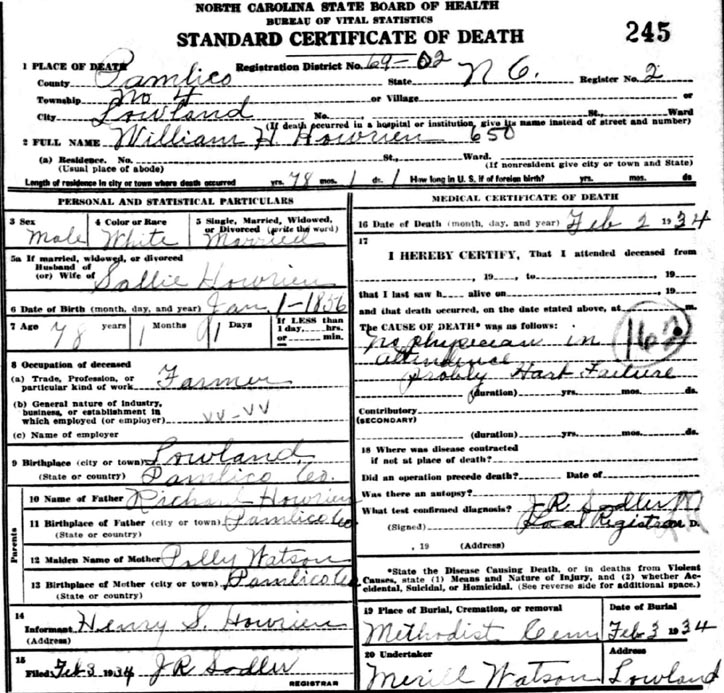 NORTH CAROLINA STATE BOARD OF HEALTH
BUREAU OF VITAL STATISTICS
STANDARD CERTIFICATE OF DEATH 245
1 PLACE OF DEATH Registration District No. 69-02
County Pamlico State N C. Register No. 2
Township No 4 or Village or
City Lowland No. St., Ward
(If death occurred in a hospital or institution, give its name instead of street and number)
2 FULL NAME William H Howrien 650
(a) Residence. No. St., Ward.
(Usual place of abode) (If nonresident give city or town and State)
Length of residence in city or town where death occurred yrs. 78 mos. 1 ds. 1 How long in U. S. if of foreign birth? yrs. mos. ds
PERSONAL AND STATISTICAL PARTICULARS
3 Sex 4 Color or Race 5 Single, Married, Widowed, or Divorced (write the word)
Male White Married
5a If married, widowed, or divorced
Husband of
(or) Wife of Sallie Howrien
6 Date of Birth (month, day, and year) Jan. 1-1856
7 Age 78 years 1 Months 1 Days If LESS than 1 day, hrs. or min.
8 Occupation of deceased
(a) Trade, Profession, or particular kind of work Farmer
(b) General nature of industry, business, or establishment in which employed (or employer)
(c) Name of employer
9 Birthplace (city or town) Lowland
(State or country) Pamlico Co.
Parents
10 Name of Father Richard Howrien
11 Birthplace of Father (city or town) Pamlico Co
(State or country)
12 Maiden Name of Mother Polly Watson
13 Birthplace of Mother (city or town) Pamlico Co
(State or country)
14
Informant Henry S. Howrien
(Address)
15
Filed Feb 3 1934 J R Sadler
REGISTRAR
MEDICAL CERTIFICATE OF DEATH
16 Date of Death (month, day, and year) Feb 2 1934
17
I HEREBY CERTIFY, That I attended deceased from
, 19 , to , 19
that I last saw h alive on , 19
and that death occurred, on the date stated above, at m.
The CAUSE OF DEATH* was as follows:
No physician in
attendence
probly Hart Failure
(duration) yrs. mos. ds.
Contributory
(SECONDARY)
(duration) yrs. mos. ds.
18 Where was disease contracted
if not at place of death?
Did an operation precede death? Date of
Was there an autopsy?
What test confirmed diagnosis? J-R. Sadler
(Signed) Local Registrar D.
, 19 (Address)
*State the Disease Causing Death, or in deaths from Violent
Causes, state (1) Means and Nature of Injury, and (2) whether Ac-
cidental, Suicidal, or Homicidal. (See reverse side for additional space.)
19 Place of Burial, Cremation, or removal Date of Burial
Methodist Cem Feb 3 1934
20 Undertaker Address
Merill Watson Lowland